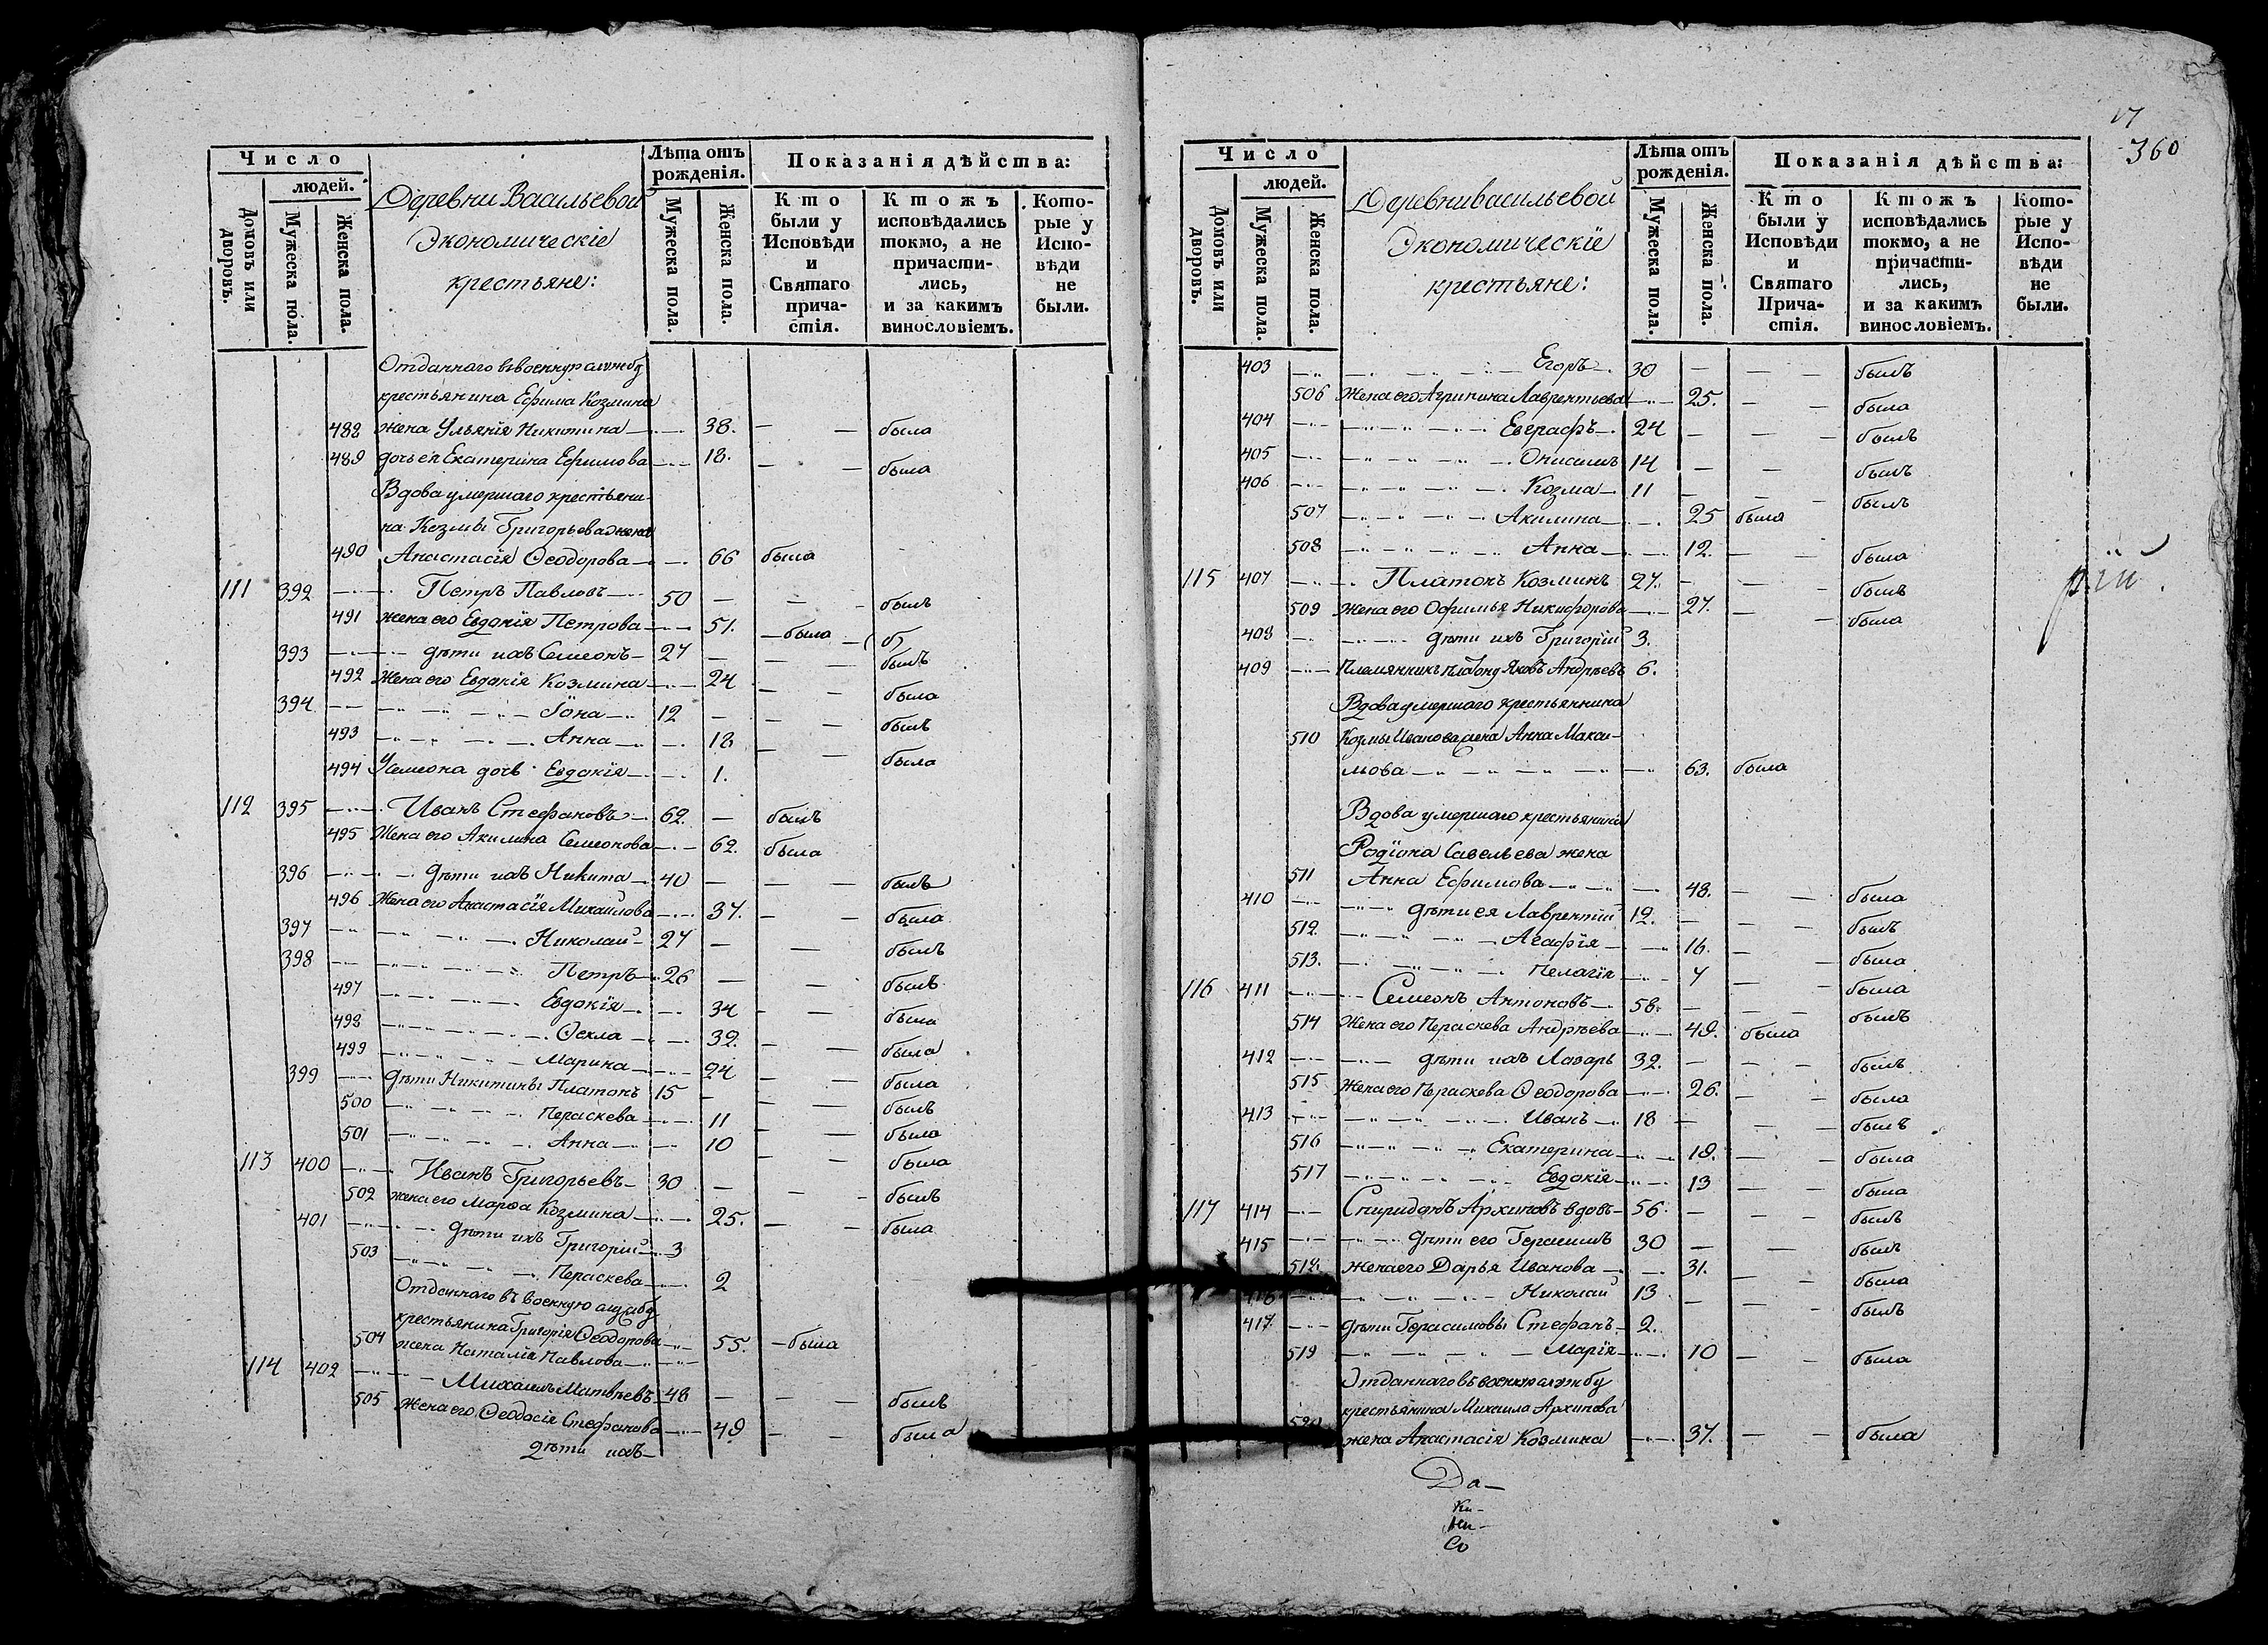 Число
людей.
Домовъ или дворовъ.
Мужеска пола.
Женска пола.
Деревни Васильевой
Экономическіе
крестьяне:
Лѣта отъ рожденія.
Мужеска пола.
Женска пола.
Показанія дѣйства:
Кто были у Исповѣди и Святаго причастія.
Ктожъ исповѣдались токмо, а не причастились, и за какимъ винословіемъ.
Которые у Исповѣди не были.
Отданнаго въ военную службу
крестьянина Ефима Козмина
482 жена Ульянія Никитина 38. была
489 дочь ея Екатерина Ефимова 18. была
Вдова умершаго крестьяни-
на Козмы Григорьева жена
490 Анастасія Ѳеодорова 66 была
111 392 Петръ Павловъ 50 былъ
491 жена его Евдокія Петрова 51. была
393 дѣти ихъ Семеонъ 27 былъ
492 Жена его Евдокія Козмина 24 была
394 Іона 12 былъ
493 Анна 18 была
494 У Семеона дочь Евдокія 1.
112 395 Иванъ Стефановъ 62. былъ
495 Жена его Акилина Семеонова 62. была
396 дѣти ихъ Никита 40 былъ
496 Жена его Анастасія Михайлова 37. была
397 Николай 27 былъ
398 Петръ 26 былъ
497 Евдокія 34 была
498 Ѳекла 32. была
499 Марина 24 была
399 дѣти Никитины Платонъ 15 былъ
500 Параскева 11 была
501 Анна 10 была
113 400 Иванъ Григорьевъ 30 былъ
502 жена его Марѳа Козмина 25. была
401 дѣти ихъ Григорій 3
503 Параскева 2
Отданнаго въ военную службу
крестьянина Григорія Ѳеодорова
504 жена Наталія Павлова 55. была
114 402 Михаилъ Матвѣевъ 48 былъ
505 Жена его Ѳеодосія Стефанова 49 была
дѣти ихъ
360
Число
людей.
Домовъ или дворовъ.
Мужеска пола.
Женска пола.
Деревни Васильевой
Экономическіе
крестьяне:
Лѣта отъ рожденія.
Мужеска пола.
Женска пола.
Показанія дѣйства:
Кто были у Исповѣди и Святаго Причастія.
Ктожъ исповѣдались токмо, а не причастились, и за какимъ винословіемъ.
Которые у Исповѣди не были.
403 Егоръ 30 былъ
506 Жена его Агрипина Лаврентьева 25. была
404 Евграфъ 24 былъ
405 Онисимъ 14 былъ
406 Козма 11 былъ
507 Акилина 25 была
508 Анна 12. была
115 407 Платонъ Козминъ 27. былъ
509 Жена его Офимья Никифорова 27. была
408 дѣти ихъ Григорій 3.
409 Племянникъ Платону Яковъ Андрѣевъ 6.
Вдова умершаго крестьянина
510 Козмы Иванова жена Анна Макси-
мова 63. была
Вдова умершаго крестьянина
Родіона Савельева жена
511 Анна Ефимова 48. была
410 дѣти ея Лаврентій 12. былъ
512. Агафія 16. была
513. Пелагія 7 была
116 411 Семеонъ Антоновъ 58. былъ
514 Жена его Параскева Андрѣева 49. была
412 дѣти ихъ Лазарь 32. былъ
515 Жена его Параскева Ѳеодорова 26. была
413 Иванъ 18 былъ
516 Екатерина 19. была
517 Евдокія 13 была
117 414 Спиридонъ Архиповъ вдовъ 56. былъ
415 дѣти его Герасимъ 30 былъ
518. жена его Дарья Иванова 31. была
416 Николай 13 былъ
417 дѣти Герасимовы Стефанъ 2.
519 Марія 10 была
Отданнаго въ военную службу
крестьянина Михаила Архипова
520 жена Анастасія Козмина 37. была
Да-
Ки-
Ни-
Со